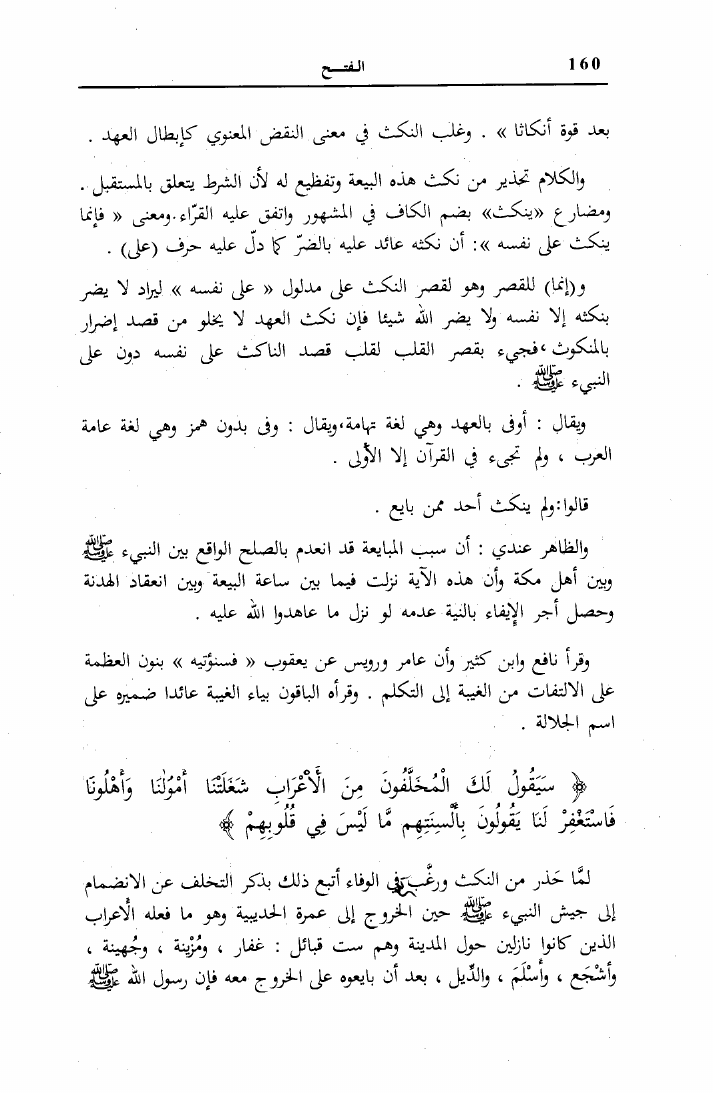 160
الفتـح
بعد قوة أنكاثا » . وغلب النكث في معنى النقض المعنوي كإبطال العهد .
والكلام تحذير من نكث هذه البيعة وتفظيع له لأن الشرط يتعلق بالمستقبل .
ومضارع «ينكث» بضم الكاف في المشهور واتفق عليه القرّاء.ومعنى « فإنما
ينكث على نفسه »: أن نكثه عائد عليه بالضرّ كما دلّ عليه حرف (على) .
و(إنما) للقصر وهو لقصر النكث على مدلول « على نفسه » ليراد لا يضر
بنكثه إلا نفسه ولا يضر الله شيئا فإن نكث العهد لا يخلو من قصد إضرار
بالمنكوث،فجيء بقصر القلب لقلب قصد الناكث على نفسه دون على
النبيء ﷺ .
ويقال : أوفى بالعهد وهي لغة تهامة،ويقال : وفى بدون همز وهي لغة عامة
العرب ، ولم تجىء في القرآن إلا الأولى .
قالوا:ولم ينكث أحد ممن بايع .
والظاهر عندي : أن سبب المبايعة قد انعدم بالصلح الواقع بين النبيء ﷺ
وبين أهل مكة وأن هذه الآية نزلت فيما بين ساعة البيعة وبين انعقاد الهدنة
وحصل أجر الإيفاء بالنية عدمه لو نزل ما عاهدوا الله عليه .
وقرأ نافع وابن كثير وأن عامر ورويس عن يعقوب « فسنؤتيه » بنون العظمة
على الالتفات من الغيبة إلى التكلم . وقرأه الباقون بياء الغيبة عائدا ضميره على
اسم الجلالة .
﴿ سَيَقُولُ لَكَ الْمُخَلَّفُونَ مِنَ الْأَعْرَابِ شَغَلَتْنَا أَمْوَٰلُنَا وَأَهْلُونَا
فَاسْتَغْفِرْ لَنَا يَقُولُونَ بِأَلْسِنَتِهِم مَّا لَيْسَ فِي قُلُوبِهِمْ ﴾
لمَّا حَذر من النكث ورغَّب في الوفاء أتبع ذلك بذكر التخلف عن الانضمام
إلى جيش النبيء ﷺ حين الخروج إلى عمرة الحديبية وهو ما فعله الأعراب
الذين كانوا نازلين حول المدينة وهم ست قبائل : غفار ، ومُزَينة ، وجُهينة ،
وأشْجَع ، وأسْلَمَ ، والدِّيل ، بعد أن بايعوه على الخروج معه فإن رسول الله ﷺ